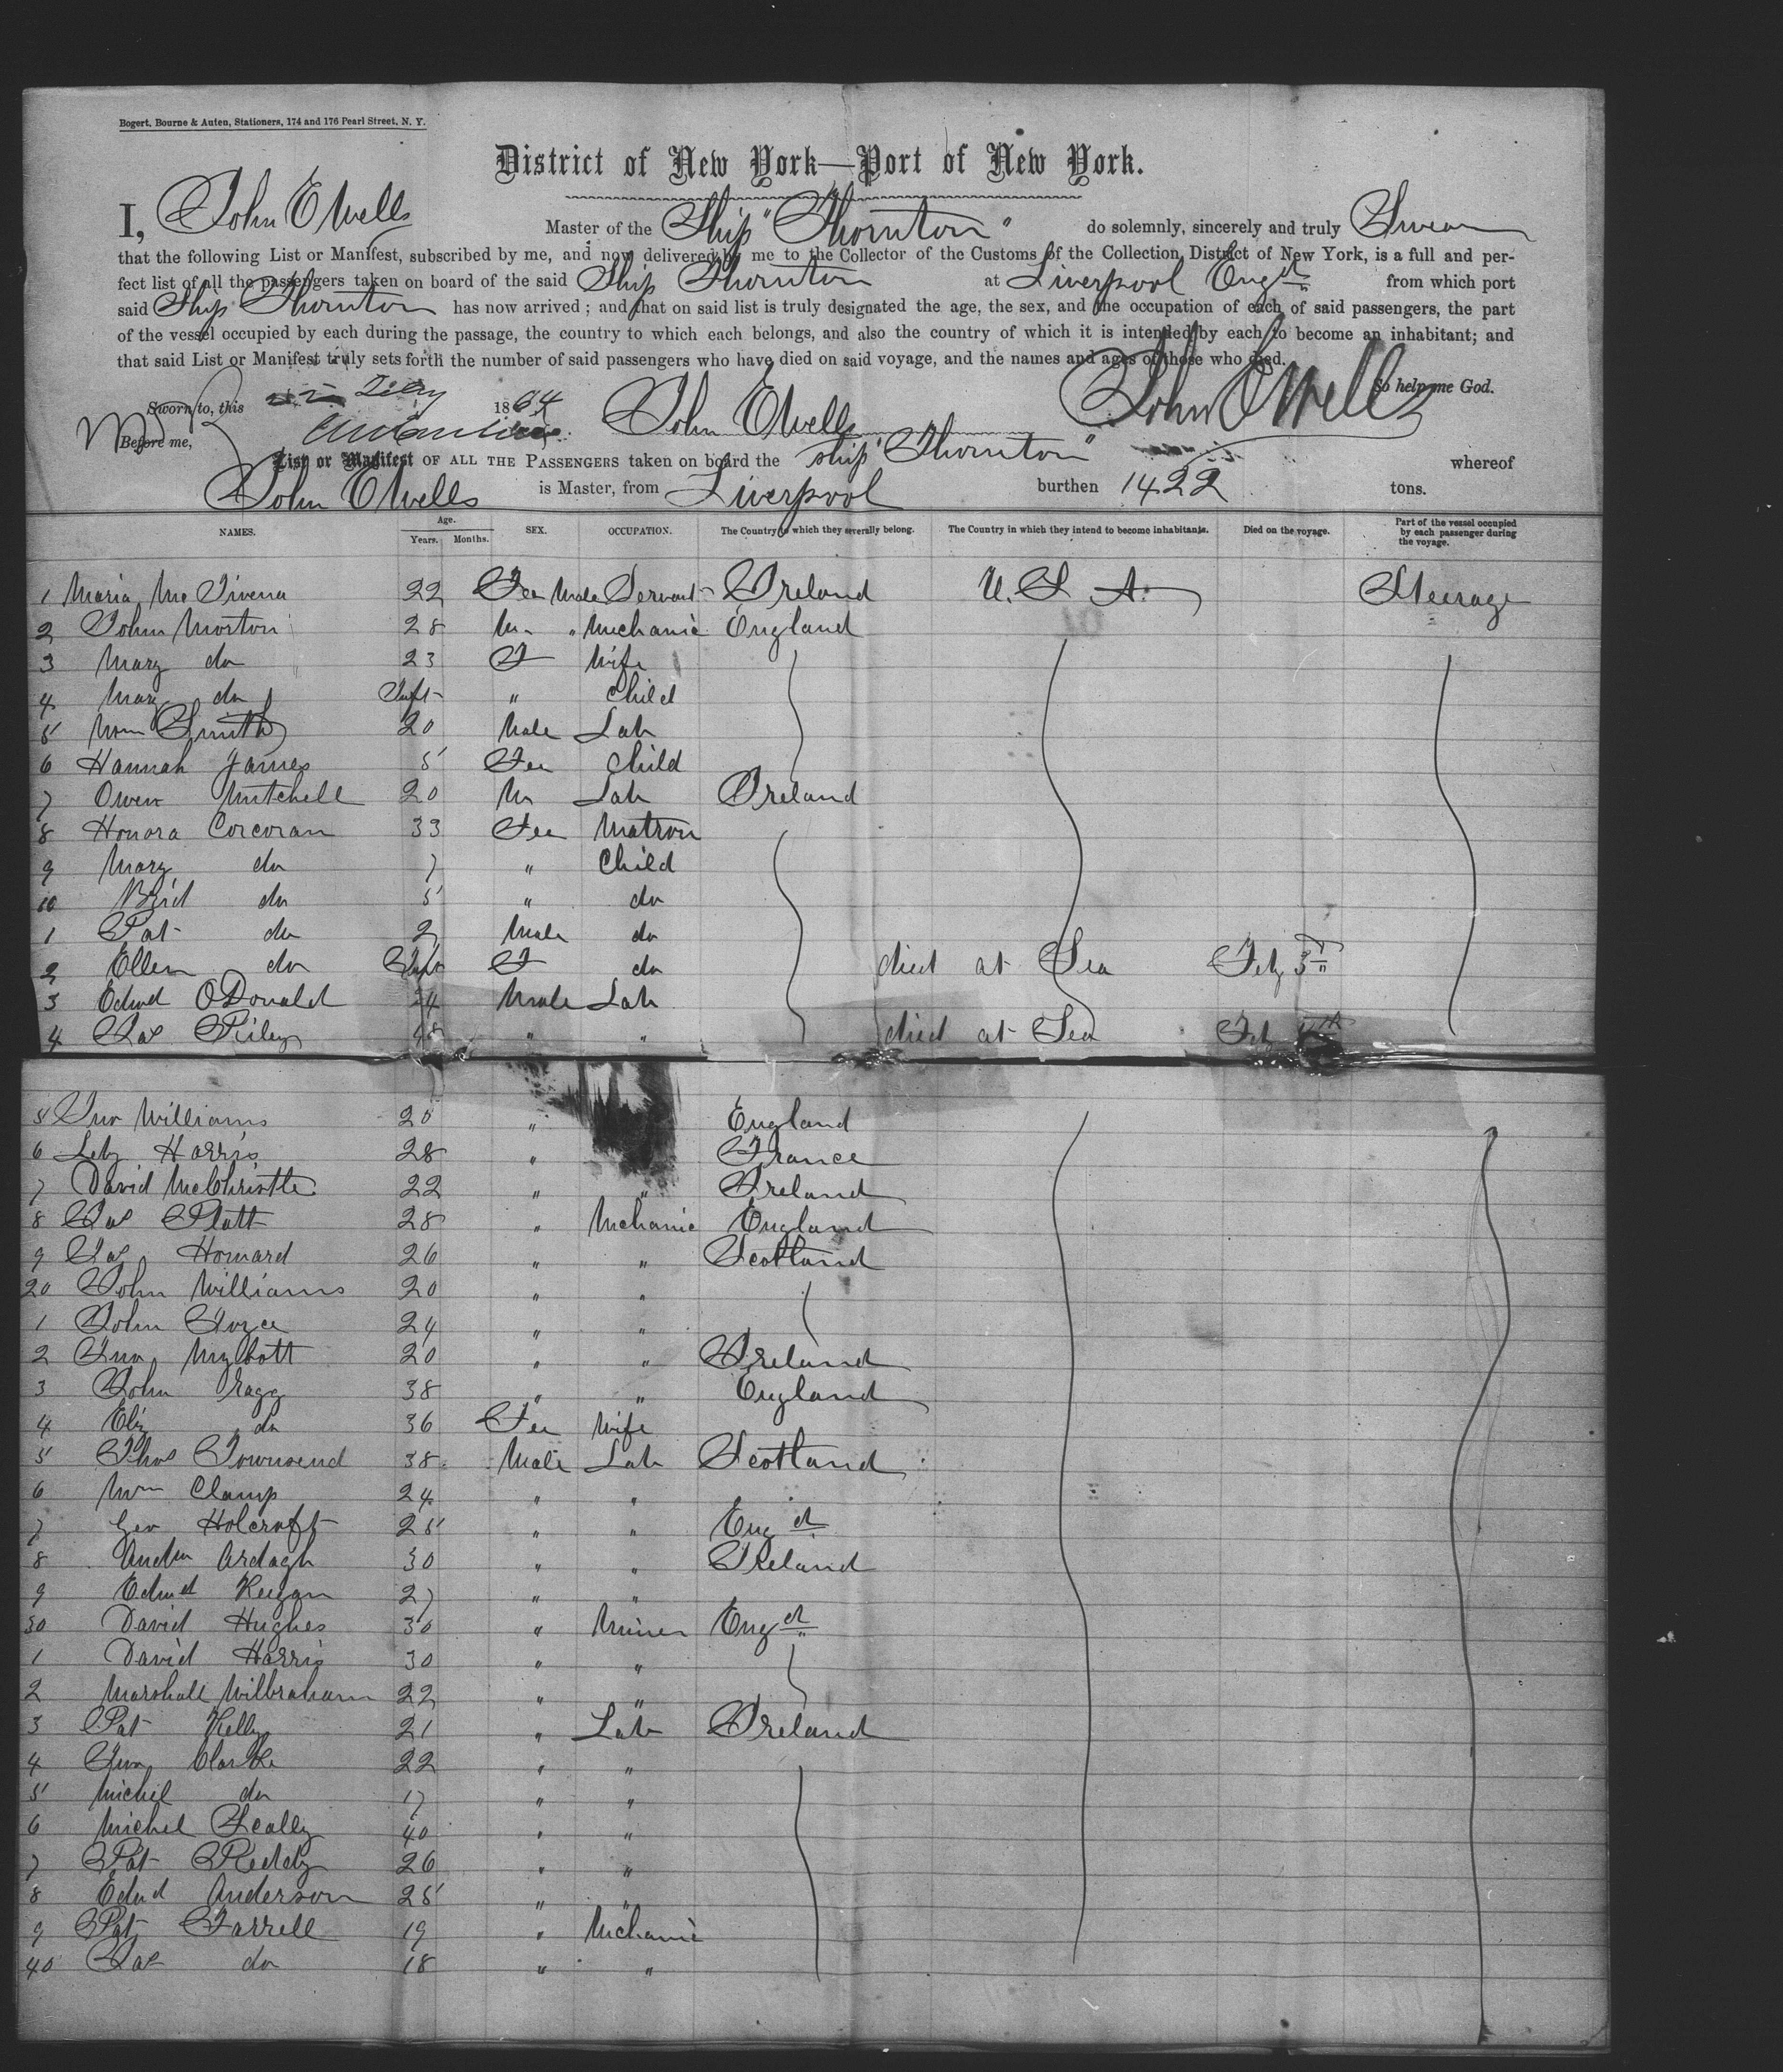 Bogert, Bourne & Auten, Stationers, 174 and 176 Pearl Street, N. Y.
District of New York—Port of New York.
I, John E Wells Master of the Ship "Thornton" do solemnly, sincerely and truly Swear
that the following List or Manifest, subscribed by me, and now delivered by me to the Collector of the Customs of the Collection District of New York, is a full and per-
fect list of all the passengers taken on board of the said Ship Thornton at Liverpool Engd from which port
said Ship Thornton has now arrived; and that on said list is truly designated the age, the sex, and the occupation of each of said passengers, the part
of the vessel occupied by each during the passage, the country to which each belongs, and also the country of which it is intended by each to become an inhabitant; and
that said List or Manifest truly sets forth the number of said passengers who have died on said voyage, and the names and ages of those who died.
So help me God.
Sworn to, this 1864 John E Wells John E Wells
Before me,
List or Manifest OF ALL THE PASSENGERS taken on board the ship "Thornton" whereof
John E Wells is Master, from Liverpool burthen 1422 tons.
NAMES. Age. Years. Months. SEX. OCCUPATION. The Country to which they severally belong. The Country in which they intend to become inhabitants. Died on the voyage. Part of the vessel occupied by each passenger during the voyage.
1 Maria 22 Fee Male Servant Ireland U. S A. Steerage
2 John Morton 28 M " Mechanic England
3 Mary do 23 F Wife
4 Mary do Inft " Child
5 Wm Smith 20 Male Lab
6 Hannah James 5 Fee Child
7 Owen Mitchell 20 M Lab Ireland
8 Honora Corcoran 33 Fee Matron
9 Mary do 7 " Child
10 Brid do 5 " do
1 Pat do 2 Male do
2 Ellen do Inft F do died at Sea Feb 3d
3 Edwd O Donald 24 Male Lab
4 Jas Riley 48 " " died at Sea Feb
5 Jno Williams 20 " England
6 Harris 28 " France
7 David McChristle 22 " " Ireland
8 Jas Platt 28 " Mchanic England
9 Jas Howard 26 " " Scotland
20 John Williams 20 " "
1 John Joyce 24 " "
2 Jno 20 " " Ireland
3 John Fagg 38 " " England
4 Eliz do 36 Fee Wife
5 Thos Townsend 38 Male Lab Scotland
6 Wm Clamp 24 " "
7 Geo Holcroft 25 " " Engd
8 Andw Ardagh 30 " " Ireland
9 Edwd Keegan 27 " "
30 David Hughes 30 " Miner Engd
1 David Harris 30 " "
2 Marshall Wilbraham 22 " "
3 Pat Kelly 21 " Lab Ireland
4 Jno Clarke 22 " "
5 Michel do 17 " "
6 Michel Scally 40 " "
7 Pat Reddy 26 " "
8 Edwd Anderson 25 " "
9 Pat Farrell 19 " Mchanic
40 Jas do 18 " "